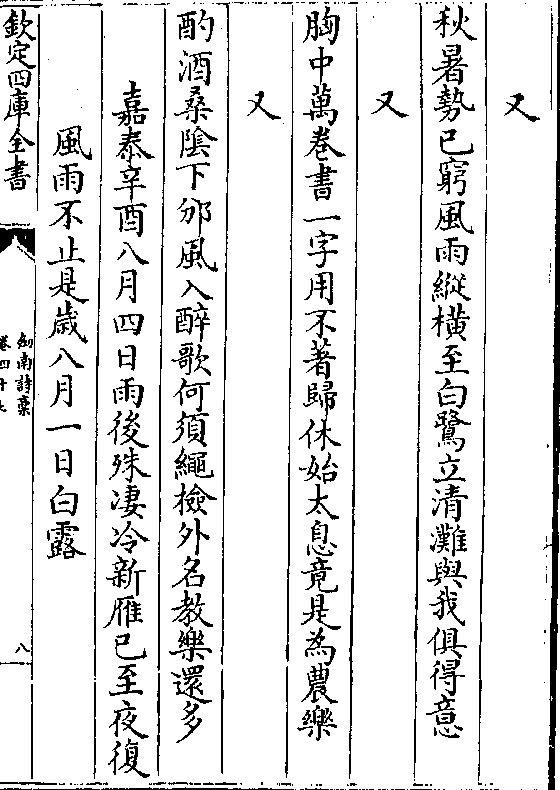 又
秋暑勢已窮風雨縱橫至白鷺立清灘與我俱得意
又
胸中萬卷書一字用不著歸休始太息竟是為農樂
又
酌酒桑陰下邠風入醉歌何須繩檢外名教樂還多
嘉泰辛酉八月四日雨後殊凄冷新雁已至夜復
風雨不止是歳八月一日白露
欽定四庫全書
劍南詩稾
卷四十七
八